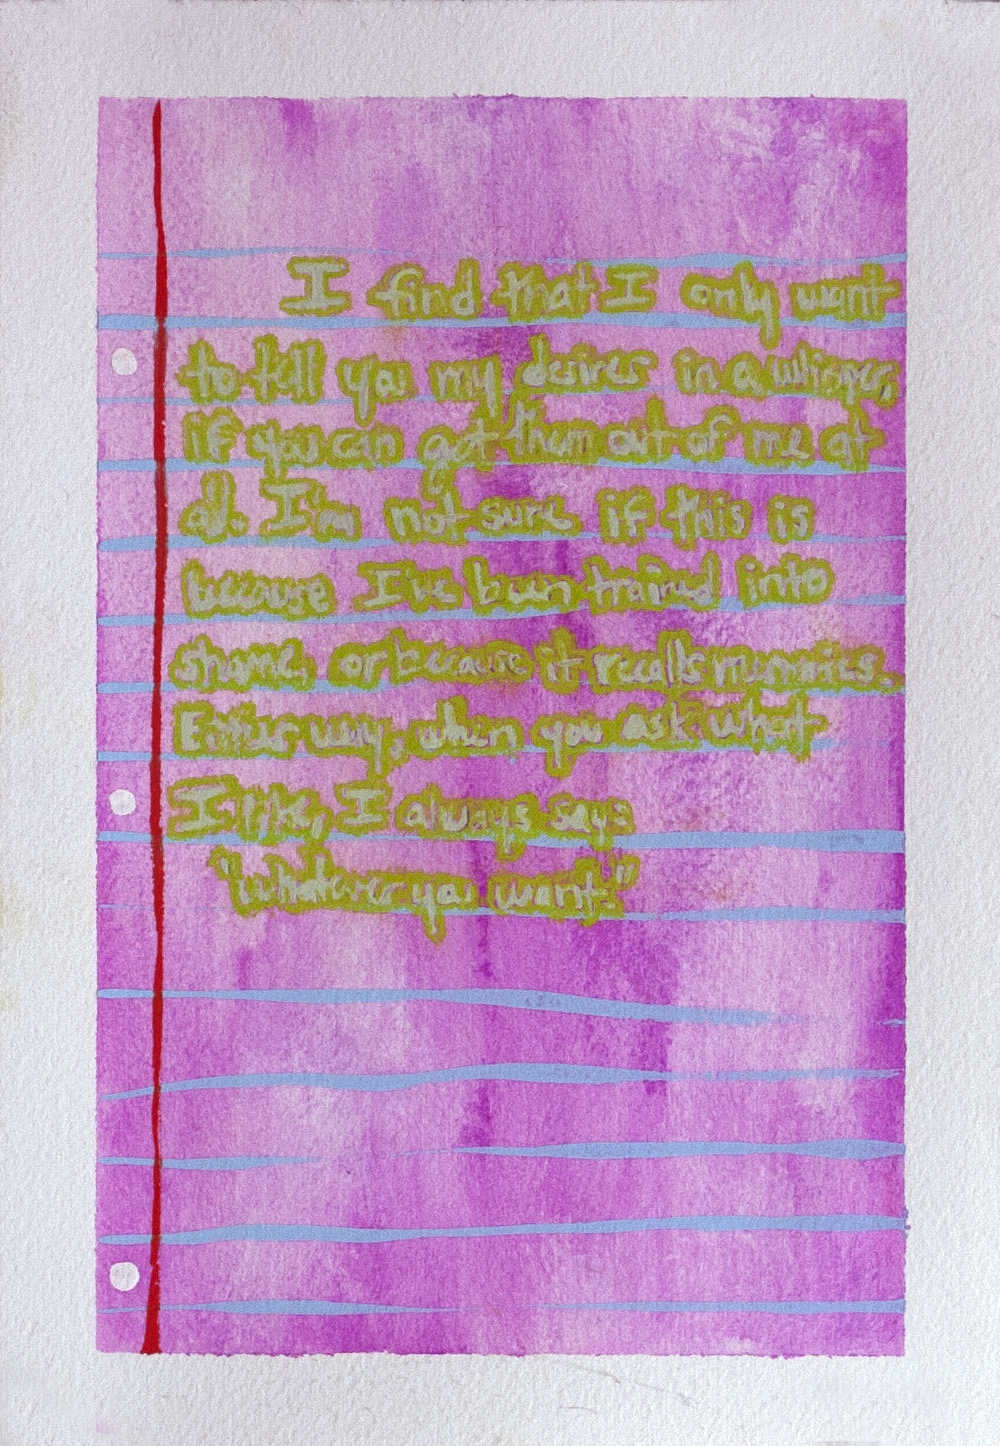 I find that I only want
to tell you my desires in a whisper,
if you can get them out of me at
all. I'm not sure if this is
because I've been trained into
shame, or because it recalls memories.
Either way, when you ask what
I like, I always say:
"whatever you want."